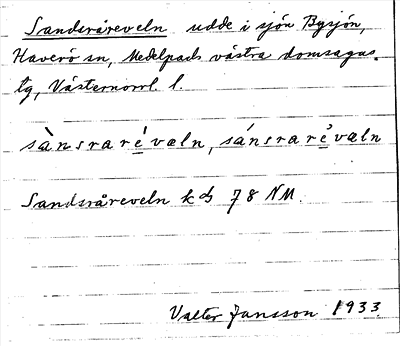 Sandsråreveln udde i sjön Bysjön,
Haverö sn, Medelpads västra domsagas
tg, Västernorrl. l.
sànsrarévæln, sánsrarévæln
Sandsråreveln kb 78 NM.
Valter Jansson 1933